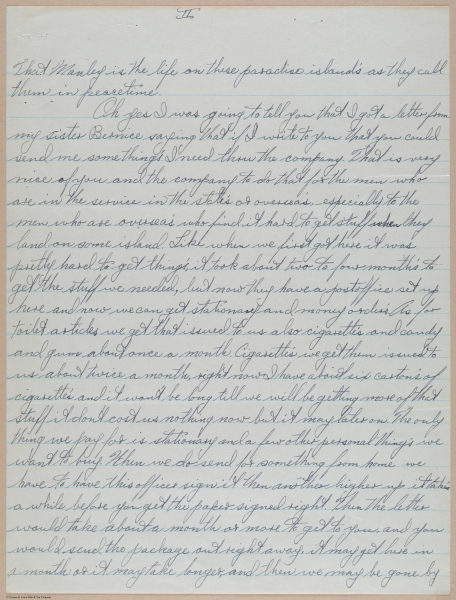 II
That Manley is the life on these paradise island's as they call
them in peacetime
Oh yes I was going to tell you that I got a letter from
my sister Bernice saying that if I write to you that you could
send me some things I need thru the company. That is very
nice of you and the company to do that for the men who
are in the service in the states or overseas, especially to the
men who are overseas who find it hard to get stuff when they
land on some island. Like when we first got here it was
pretty hard to get things, it took about two to four month's to
get the stuff we needed, but now they have a post office set up
here and now we can get stationary and money orders. As for
toilet articles we get that issued to us also cigaretts and candy
and gum about once a month. Cigaretts we get them issued to
us about twice a month, right now I have about six carton's of
cigaretts and it won't be long till we will be getting more of that
stuff it don't cost us nothing now but it may later on. The only
thing we pay for is stationary and a few other personal things we
want to buy. When we do send for something from home we
have to have this officer sign it then another higher up it takes
a while before you get the paper signed right. Then the letter
would take about a month or more to get to you, and you
would send the package out right away, it may get here in
a month or it may take longer, and then we may be gone by